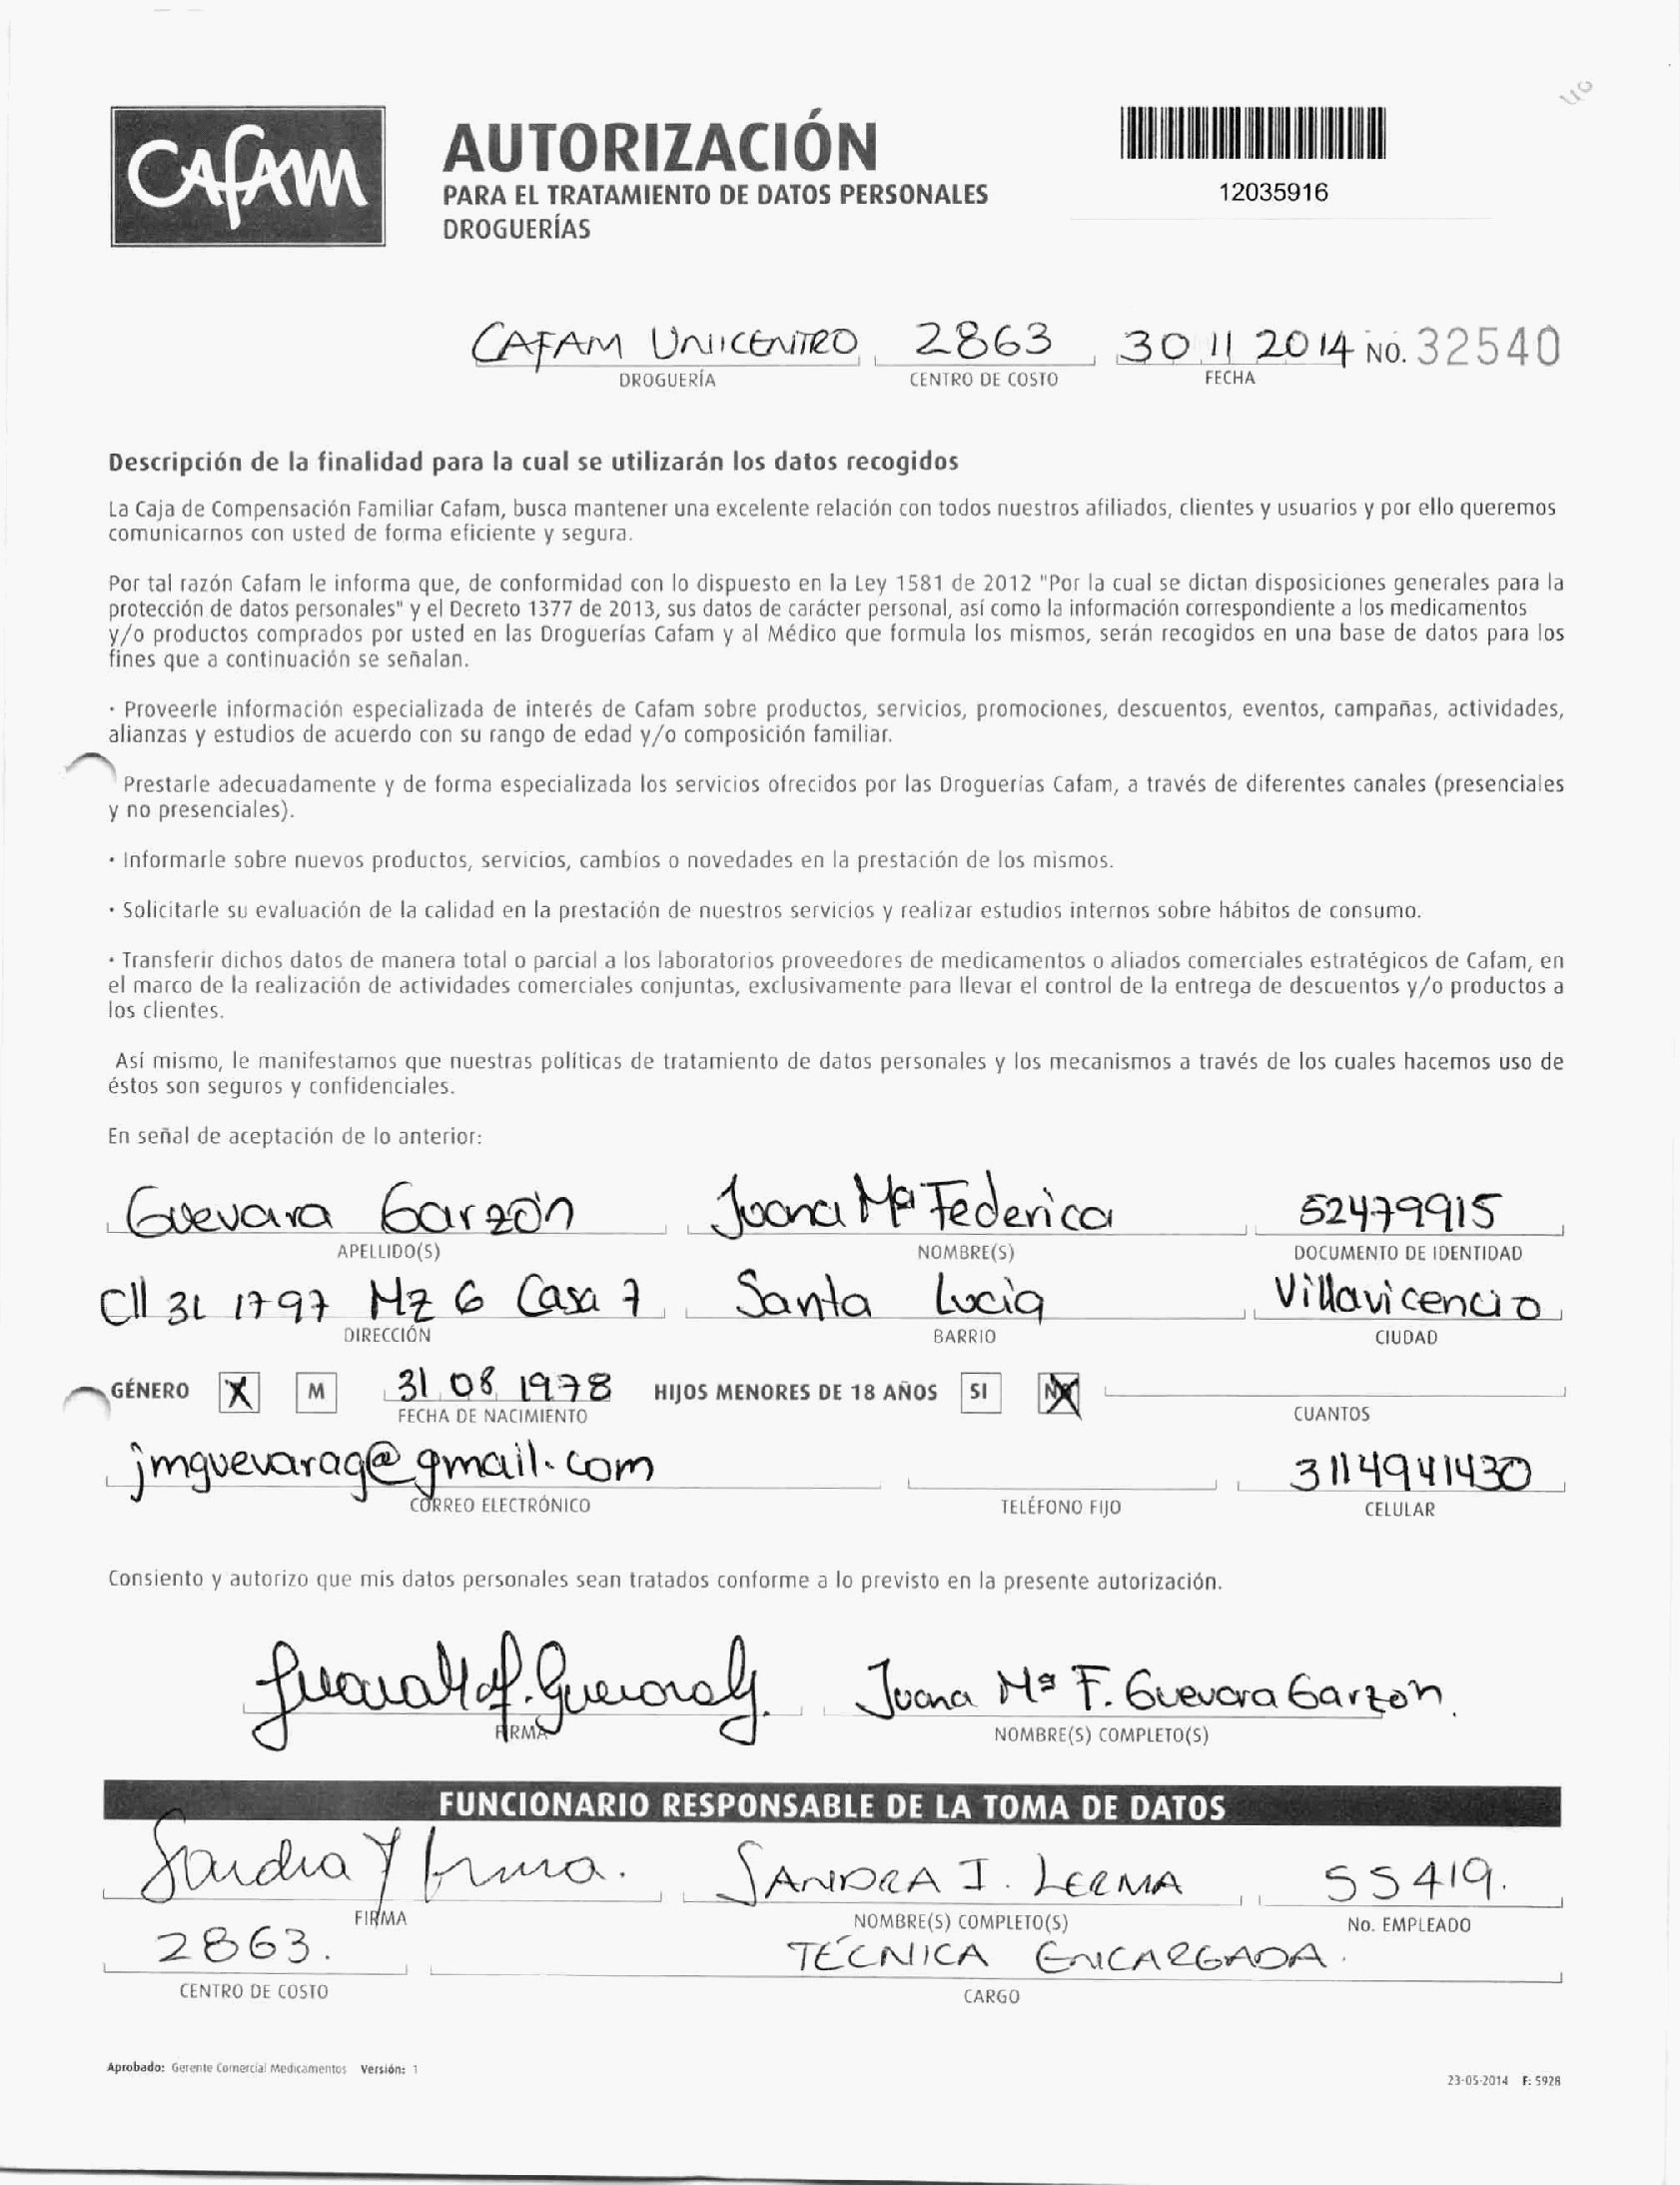 CAFAM
AUTORIZACIÓN
PARA EL TRATAMIENTO DE DATOS PERSONALES
DROGUERÍAS
12035916
CAFAM UNICENTRO 2863 30 11 2014 NO. 32540
DROGUERÍA CENTRO DE COSTO FECHA
Descripción de la finalidad para la cual se utilizarán los datos recogidos
La Caja de Compensación Familiar Cafam, busca mantener una excelente relación con todos nuestros afiliados, clientes y usuarios y por ello queremos
comunicarnos con usted de forma eficiente y segura.
Por tal razón Cafam le informa que, de conformidad con lo dispuesto en la Ley 1581 de 2012 "Por la cual se dictan disposiciones generales para la
protección de datos personales" y el Decreto 1377 de 2013, sus datos de carácter personal, así como la información correspondiente a los medicamentos
y/o productos comprados por usted en las Droguerías Cafam y al Médico que formula los mismos, serán recogidos en una base de datos para los
fines que a continuación se señalan.
· Proveerle información especializada de interés de Cafam sobre productos, servicios, promociones, descuentos, eventos, campañas, actividades,
alianzas y estudios de acuerdo con su rango de edad y/o composición familiar.
Prestarle adecuadamente y de forma especializada los servicios ofrecidos por las Droguerías Cafam, a través de diferentes canales (presenciales
y no presenciales).
· Informarle sobre nuevos productos, servicios, cambios o novedades en la prestación de los mismos.
· Solicitarle su evaluación de la calidad en la prestación de nuestros servicios y realizar estudios internos sobre hábitos de consumo.
· Transferir dichos datos de manera total o parcial a los laboratorios proveedores de medicamentos o aliados comerciales estratégicos de Cafam, en
el marco de la realización de actividades comerciales conjuntas, exclusivamente para llevar el control de la entrega de descuentos y/o productos a
los clientes.
Así mismo, le manifestamos que nuestras políticas de tratamiento de datos personales y los mecanismos a través de los cuales hacemos uso de
éstos son seguros y confidenciales.
En señal de aceptación de lo anterior:
Guevara Garzón Juana Mª Federica 52479915
APELLIDO(S) NOMBRE(S) DOCUMENTO DE IDENTIDAD
Cll 31 1797 Mz 6 Casa 7 Santa Lucia Villavicencio
DIRECCIÓN BARRIO CIUDAD
GÉNERO X M 31 08 1978 HIJOS MENORES DE 18 AÑOS SI NO
FECHA DE NACIMIENTO CUANTOS
jmguevarag@gmail.com 3114941430
CORREO ELECTRÓNICO TELÉFONO FIJO CELULAR
Consiento y autorizo que mis datos personales sean tratados conforme a lo previsto en la presente autorización.
Juana Mª F. Guevara Garzón.
FIRMA NOMBRE(S) COMPLETO(S)
FUNCIONARIO RESPONSABLE DE LA TOMA DE DATOS
SANDRA I. LERMA 55419.
FIRMA NOMBRE(S) COMPLETO(S) No. EMPLEADO
2863. TÉCNICA ENCARGADA.
CENTRO DE COSTO CARGO
Aprobado: Gerente Comercial Medicamentos Versión: 1
23-05-2014 F: 5928